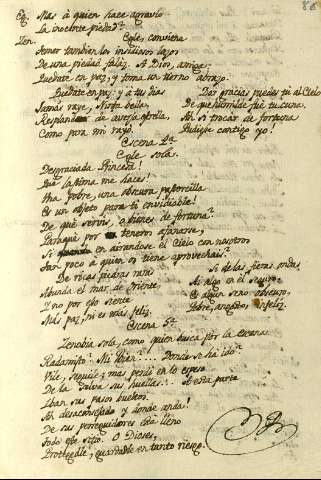 86
Eg. Mas à quien hace agravio
la inocente piedad?
Zen. Egle, conviene
temer tambien los insidiosos lazos
de una piedad falàz. A Dios, amiga:
quedate en paz, y toma un tierno abrazo.
Quedate en paz: y a tus dias
Jamàs raye, Ninfa bella,
Resplandor de aversa estrella,
Como por mi rayò.
Dar gracias puedes tu al Cielo
De que humilde fuè tu cuna.
Ah! si trocar de fortuna
Pudiese contigo yo!
Escena 4.ª
Egle sola.
Desgraciada Princesa!
Què lastima me hace!
Una pobre, una obscura pastorcilla
es un objeto para ti envidiable!
De què servis, o bienes de fortuna?
Paraquè por teneros afanarse,
si en airandose el Cielo con nosotros
tan poco à quien os tiene aprovechais?
De ricas piedras
Abunda el mar de Oriente,
Y no por eso siente
Mas paz, ni es mas feliz.
Si de las fieras ondas
Al algo en el seguro
Escena 5.ª
Zenobia sola, como quien busca por la escena
Radamisto? Mi bien?... Donde se ha ido?
Vile, seguile; mas perdi en lo espeso
De la selva sus huellas... A esta parte
Iban sus pasos bueltos.
Ah desaconsejado y donde anda!
De sus perseguidores està lleno
todo este sitio. O Dioses,
Protegedle, guardadle en tanto riesgo.